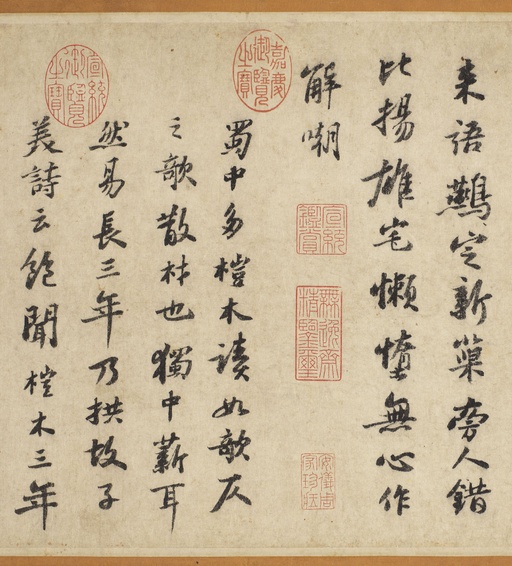 来語鷰定新巢旁人錯
比揚雄宅懶惰無心作
解嘲
蜀中多榿木讀如欹仄
之欹散材也獨中薪耳
然易長三年乃拱故子
美詩云飽聞榿木三年
嘉慶御覽之寶
宣統鑑賞
無逸齋精鑒璽
安儀周家珍藏
宣統御覽之寶